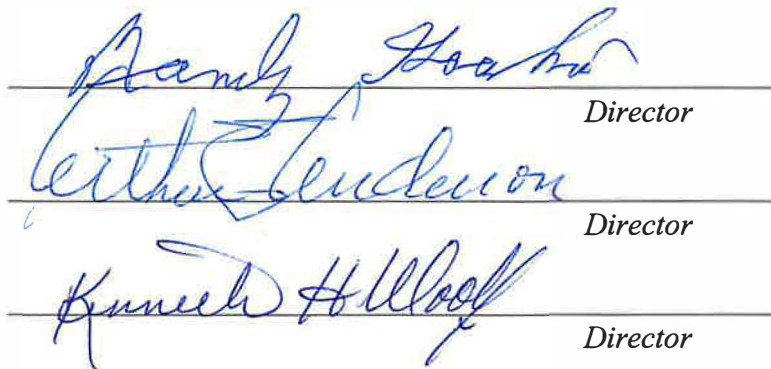 Randy
Director
Arthur Anderson
Director
Kenneth H Woolf
Director